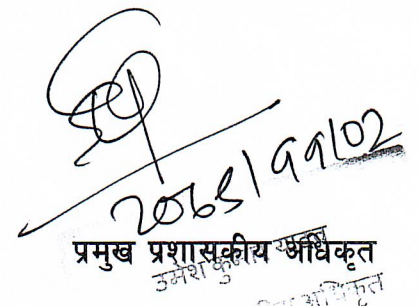 २०६९/११/०२
प्रमुख प्रशासकीय अधिकृत
उमेश कुमार यादव
अधिकृत